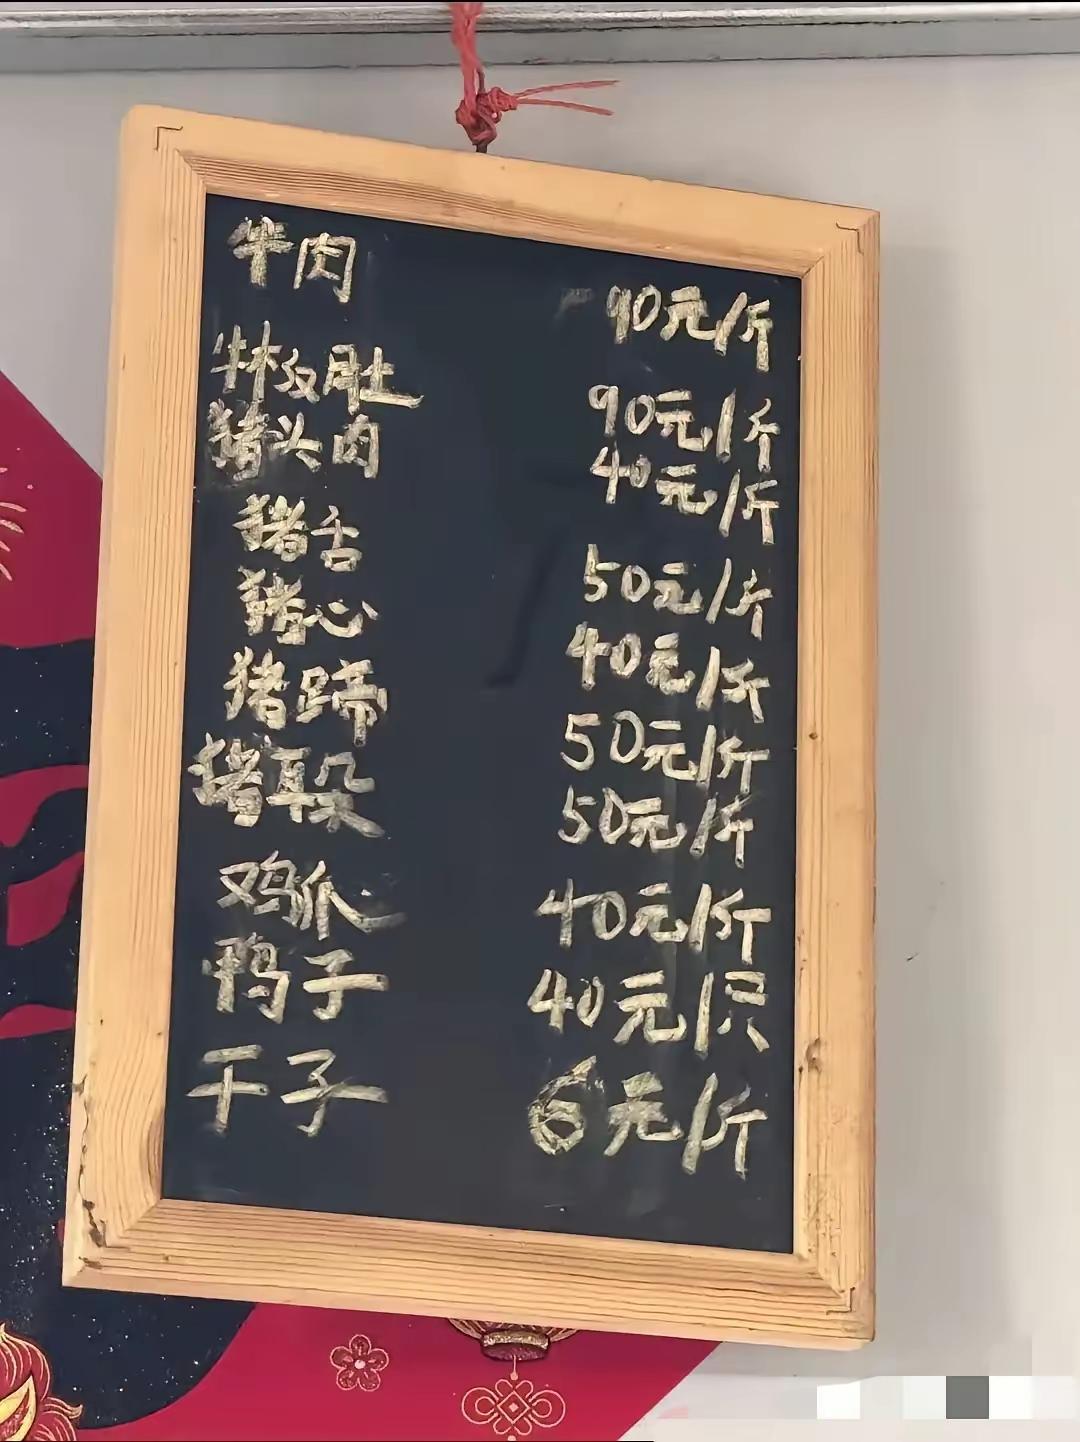 牛肉 90元/斤
牛板肚 90元/斤
猪头肉 40元/斤
猪舌 50元/斤
猪心 40元/斤
猪蹄 50元/斤
猪耳朵 50元/斤
鸡爪 40元/斤
鸭子 40元/只
干子 6元/斤